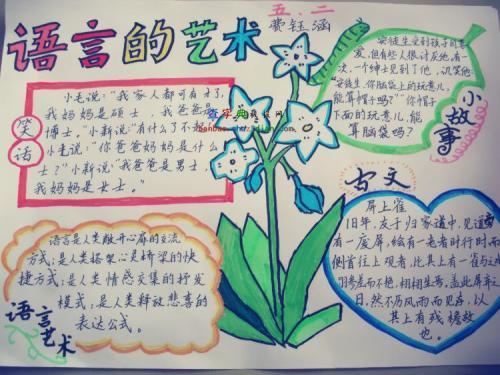 语言的艺术
五、二
费钰涵
笑话
小毛说：“我家人都可有才了，
我妈妈是硕士，我爸爸是
博士。”小新说：“有什么了不起
小毛说：“你爸爸妈妈是什么
士？”小新说：“我爸爸是男士，
我妈妈是女士。”
安徒生受到孩子的喜
爱，但有些人很讨厌他，有
一次，一个绅士见到了他，讥笑他：
“安徒生，你脑袋上的玩意儿，
能算帽子吗？”“你帽子
下面的玩意儿，能
算脑袋吗？
小故事
语言是人类敞开心扉的交流
方式；是人类搭架心是桥梁的快
捷方式；是人类情感交集的抒发
模式；是人类释放悲喜的
表达公式。
语言艺术
古文
屏上雀
旧年，友于归家道中，见道旁
有一废屏，绘有一老者时行时雨
侧首往上观者，比其上有一雀与之
羽参差而不艳，栩栩生兮，盖此屏弃之
日，然不历风雨而见存，以
其上有残檐故
也。